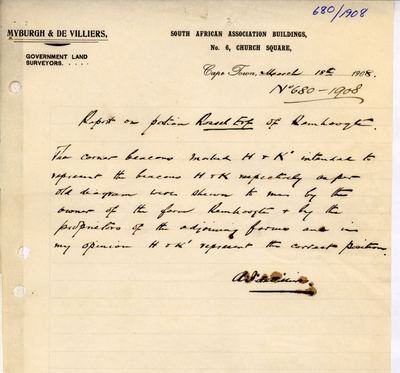 680/1908
MYBURGH & DE VILLIERS,
GOVERNMENT LAND
SURVEYORS. . . . .
SOUTH AFRICAN ASSOCIATION BUILDINGS,
No. 6, CHURCH SQUARE,
Cape Town, March 18th 1908.
No 680-1908
Report on portion of Ramhoogte.
The corner beacons marked H & K' intended to
represent the beacons H & K respectively as per
old diagram were shewn to me by the
owner of the farm Ramhoogte & by the
proprietors of the adjoining farms and in
my opinion H & K' represent the correct position.